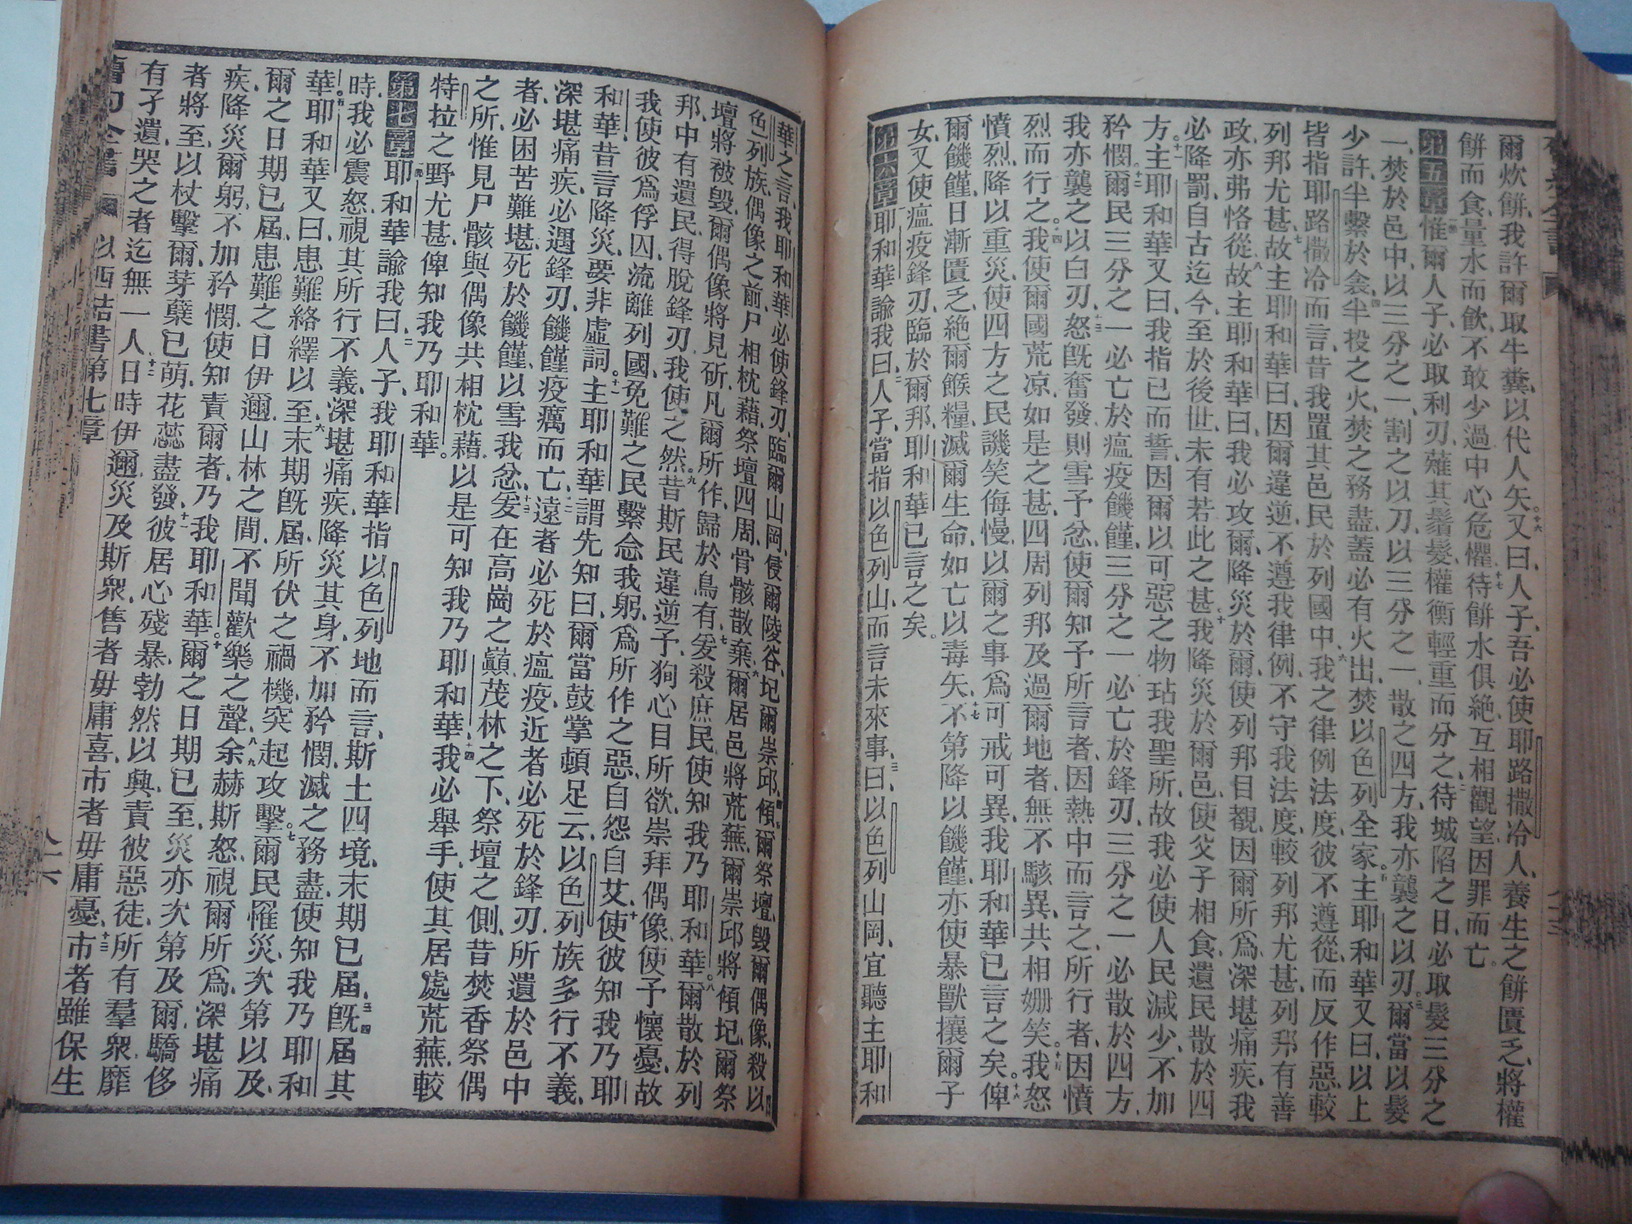 爾炊餅、我許爾取牛糞、以代人矢、十六又曰、人子、吾必使耶路撒冷人、養生之餅匱乏、將權
餅而食、量水而飲、不敢少過、中心危懼、十七待餅水俱絕、互相觀望、因罪而亡。
第五章 一惟爾人子、必取利刃、薙其鬚髮、權衡輕重而分之、二待城陷之日、必取髮三分之
一、焚於邑中、以三分之一、割之以刀、以三分之一、散之四方、我亦襲之以刃。三爾當以髮
少許、半繫於衾、四半投之火、焚之務盡、蓋必有火出、焚以色列全家。五主耶和華又曰、以上
皆指耶路撒冷而言、昔我置其邑民於列國中、六我之律例法度、彼不遵從、而反作惡、較
列邦尤甚、七故主耶和華曰、因爾違逆、不遵我律例、不守我法度、較列邦尤甚、列邦有善
政、亦弗恪從、八故主耶和華曰、我必攻爾、降災於爾、使列邦目覩、九因爾所爲、深堪痛疾、我
必降罰、自古迄今、至於後世、未有若此之甚、十我降災於爾邑、使父子相食、遺民散於四
方、十一主耶和華又曰、我指己而誓、因爾以可惡之物、玷我聖所、故我必使人民減少、不加
矜憫、十二爾民三分之一、必亡於瘟疫饑饉、三分之一、必亡於鋒刃、三分之一、必散於四方、
我亦襲之以白刃、十三怒旣奮發、則雪予忿、使爾知予所言者、因熱中而言之、所行者、因憤
烈而行之、十四我使爾國荒凉、如是之甚、四周列邦、及過爾地者、無不駭異、共相姍笑、十五我怒
憤烈、降以重災、使四方之民、譏笑侮慢、以爾之事、爲可戒可異、我耶和華已言之矣、十六俾
爾饑饉、日漸匱乏、絕爾餱糧、滅爾生命、如亡以毒矢、十七不第降以饑饉、亦使暴獸攘爾子
女、又使瘟疫鋒刃、臨於爾邦、耶和華已言之矣。
第六章 耶和華諭我曰、二人子當指以色列山而言未來事、三曰、以色列山岡、宜聽主耶和
華之言、我耶和華必使鋒刃、臨爾山岡、侵爾陵谷、圮爾崇邱、四傾爾祭壇、毀爾偶像、殺以
色列族偶像之前、五尸相枕藉、祭壇四周、骨骸散棄、六爾居邑將荒蕪、爾崇邱將傾圮、爾祭
壇將被毁、爾偶像將見斫、凡爾所作、歸於烏有、七爰殺庶民、使知我乃耶和華。八爾散於列
邦中、有遺民得脫鋒刃、我使之然、九昔斯民違逆予、狥心目所欲、崇拜偶像、使予懷憂、故
我使彼爲俘囚、流離列國、免難之民、繫念我躬、爲所作之惡、自怨自艾、十使彼知我乃耶
和華、昔言降災、要非虛詞、十一主耶和華謂先知曰、爾當鼓掌頓足云、以色列族多行不義、
深堪痛疾、必遇鋒刃、饑饉疫癘而亡、十二遠者必死於瘟疫、近者必死於鋒刃、所遺於邑中
者、必困苦難堪、死於饑饉、以雪我忿、十三爰在高崗之巔、茂林之下、祭壇之側、昔焚香祭偶
之所、惟見尸骸與偶像、共相枕藉、以是可知我乃耶和華、十四我必舉手、使其居處荒蕪、較
特拉之野尤甚、俾知我乃耶和華。
第七章 耶和華諭我曰、二人子、我耶和華指以色列地而言、斯土四境、末期已屆、三旣屆其
時、我必震怒、視其所行不義、深堪痛疾、降災其身、四不加矜憫、滅之務盡、使知我乃耶和
華、五耶和華又曰、患難絡繹、以至末期、六旣屆所伏之禍機、突起攻擊。七爾民罹災、次第以及
爾之日期已屆、患難之日伊邇、山林之間、不聞歡樂之聲、八余赫斯怒、視爾所爲、深堪痛
疾、降災爾躬、九不加矜憫、使知責爾者、乃我耶和華。十爾之日期已至、災亦次第及爾、驕侈
者將至、以杖擊爾、芽蘖已萌、花蕊盡發、十一彼居心殘暴、勃然以興、責彼惡徒、所有羣衆、靡
有孑遺、哭之者迄無一人、十二日時伊邇、災及斯衆、售者毋庸喜、市者毋庸憂、十三市者雖保生
以西結書第七章